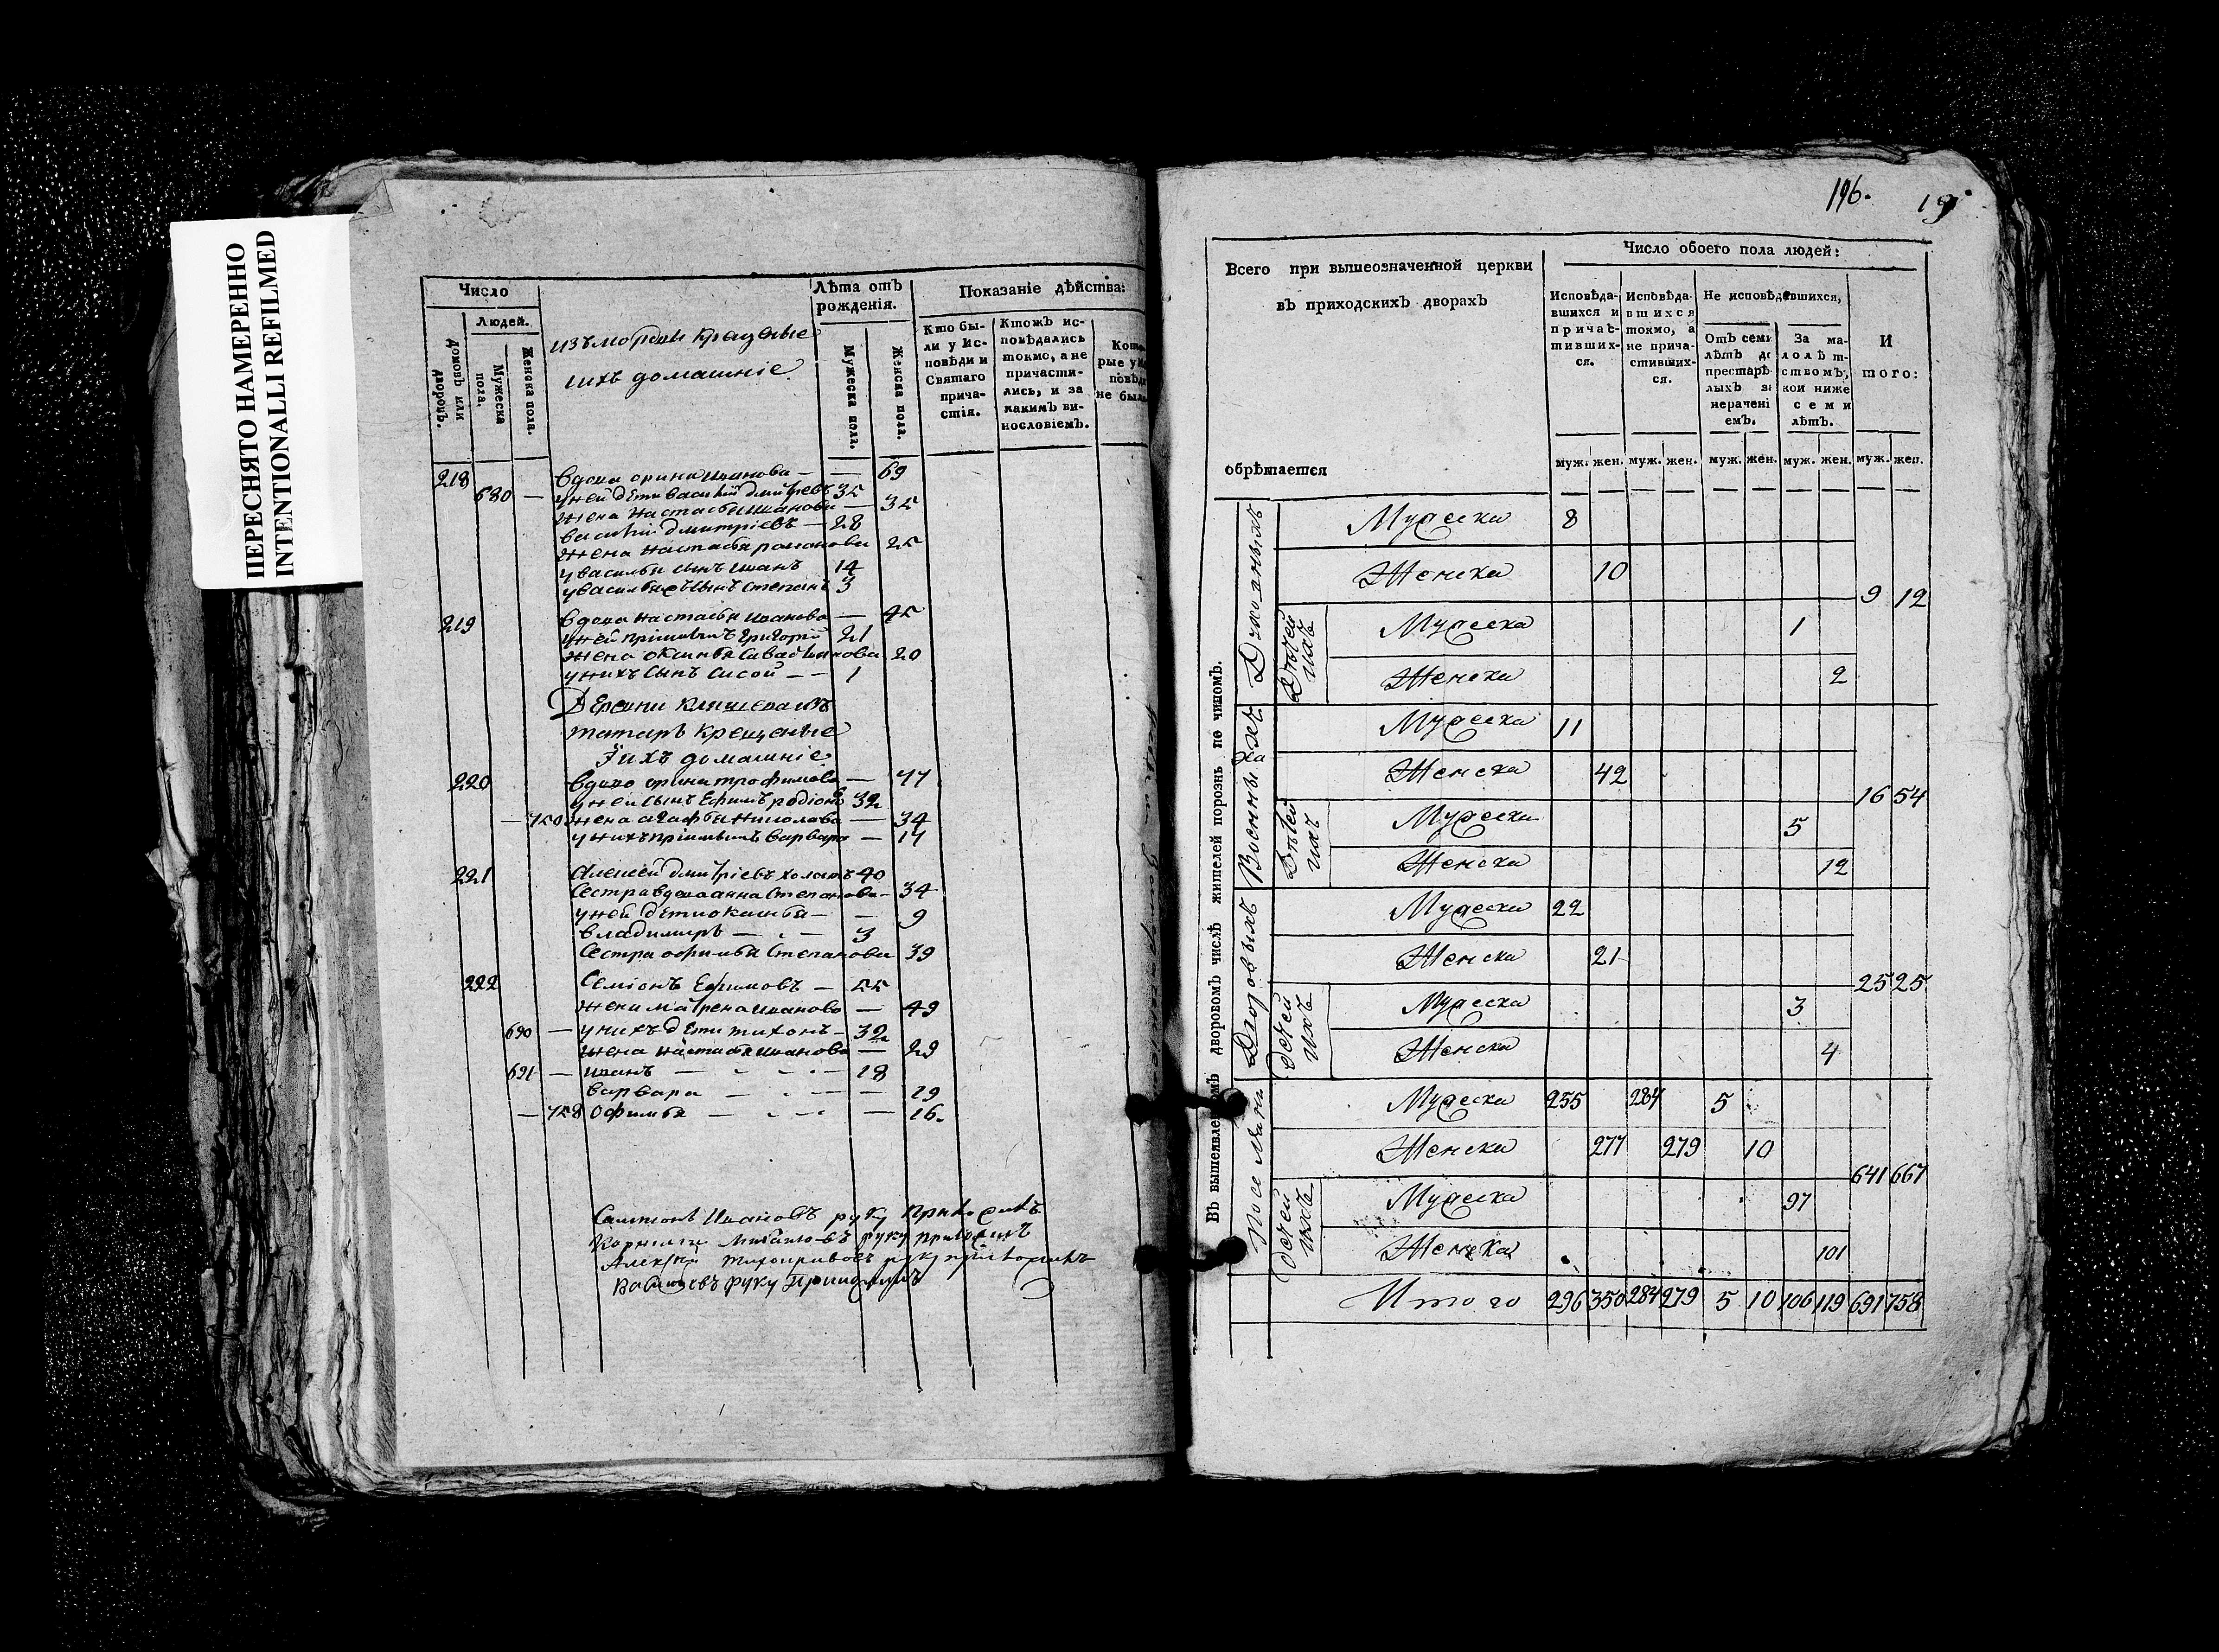 ПЕРЕСНЯТО НАМЕРЕННО
INTENTIONALLI REFILMED
Число
Людей.
Домовъ или дворовъ.
Мужеска пола.
Женска пола.
изъ мордвы крещеные
ихъ домашніе
Лѣта отъ рожденія.
Мужеска пола.
Женска пола.
Показаніе дѣйства:
Кто бы-
ли у Ис-
повѣди и
Святаго
прича-
стія.
Ктожъ ис-
повѣдались
токмо, а не
причасти-
лись, и за
какимъ ви-
нословіемъ.
Кото
рые у И
повѣд
не был
218 вдова орина иванова — — 69
680 — у ней дети василий дмитревъ 35
жена настасья иванова — 35
василий дмитріевъ — 28
жена настасья романова 25
у василья сынъ иванъ 14
у василья сынъ степанъ 3
219 вдова настасья иванова — 45
у ней пріимышъ григорий 21
жена оксинья иванова 20
у нихъ сынъ сисой — — 1
Деревни
татаръ крещеные
ихъ домашніе
220 вдова орина трофимова — 77
у ней сынъ Ефимъ родіоновъ 32
— 750 жена агафья николова — 34
у нихъ пріимышъ варвара — 17
221 Алексей дмитріевъ холостъ 40
Сестра вдова анна степанова — 34
у ней дети оксинья — — 9
владимиръ — - — 3
Сестра офимья степанова 39
222 Семіонъ Ефимовъ — 55
жена матрена иванова — 49
690 — у нихъ дети тихонъ — 32
жена настасья иванова — 29
691 — иванъ — - - — 18
варвара — - — — 19
— 758 офимья — - — — 16.
Ивановъ руку приложилъ
руку приложилъ
Алексей руку приложилъ
руку приложилъ
196. 19
Всего при вышеозначенной церкви
въ приходскихъ дворахъ
обрѣтается
Число обоего пола людей:
Исповѣда-
вшихся и
причас-
тивших-
ся.
Исповѣда-
вшихся
токмо, а
не прича-
стивших-
ся.
Не исповѣдавшихся,
Отъ семи
лѣтъ до
престарѣ
лыхъ за
нерачені
емъ.
За ма-
лолѣт-
ствомъ,
кои ниже
семи
лѣтъ.
И
того:
муж. жен. муж. жен. муж. жен. муж. жен. муж. жен.
Въ вышеявленномъ дворовомъ числѣ жителей порознь по чиномъ.
Духовныхъ
Мужеска 8
Женска 10
9 12
Дѣтей ихъ
Мужеска 1
Женска 2
Военныхъ
Мужеска 11
Женска 42
16 54
Дѣтей ихъ
Мужеска 5
Женска 12
Дворовыхъ
Мужеска 22
Женска 21
25 25
детей ихъ
Мужеска 3
Женска 4
Поселянъ
Мужеска 255 284 5
Женска 277 279 10
641 667
детей ихъ
Мужеска 97
Женска 101
Итого 296 350 284 279 5 10 106 119 691 758